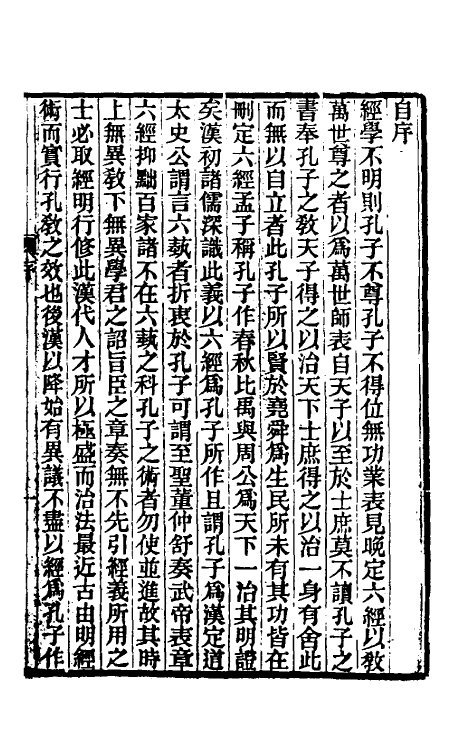 自序
經學不明則孔子不尊孔子不得位無功業表見晚定六經以敎
萬世尊之者以爲萬世師表自天子以至於士庶莫不讀孔子之
書奉孔子之敎天子得之以治天下士庶得之以治一身有舍此
而無以自立者此孔子所以賢於堯舜爲生民所未有其功皆在
刪定六經孟子稱孔子作春秋比禹與周公爲天下一治其明證
矣漢初諸儒深識此義以六經爲孔子所作且謂孔子爲漢定道
太史公謂言六埶者折衷於孔子可謂至聖董仲舒奏武帝表章
六經抑黜百家諸不在六蓺之科孔子之術者勿使並進故其時
上無異敎下無異學君之詔旨臣之章奏無不先引經義所用之
士必取經明行修此漢代人才所以極盛而治法最近古由明經
術而實行孔敎之效也後漢以降始有異議不盡以經爲孔子作